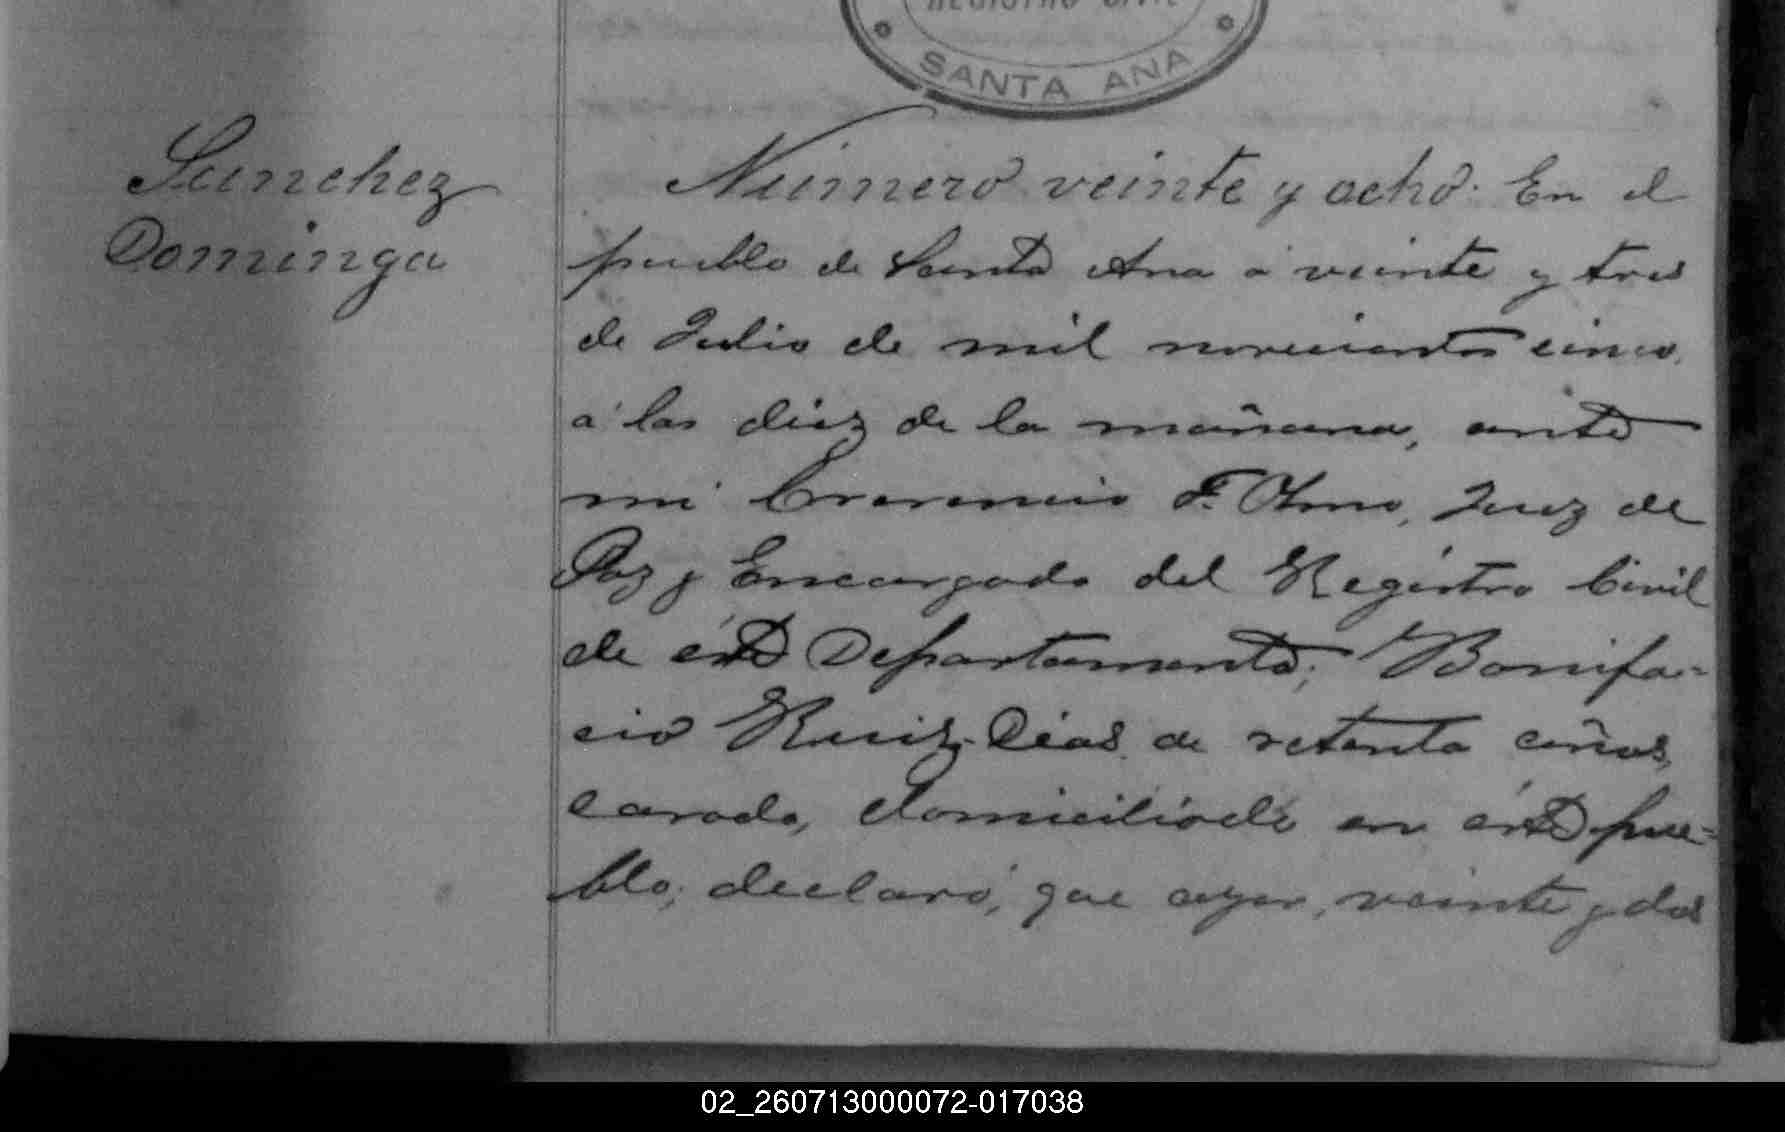 REGISTRO CIVIL
SANTA ANA
Sanchez
Dominga
Número veinte y ocho: En el
pueblo de Santa Ana á veinte y tres
de Julio de mil novecientos cinco,
á las diez de la mañana, ante
mi F. Juez de
Paz y Encargado del Registro Civil
de éste Departamento; Bonifa-
cio Ruiz Dias de setenta años,
casado, domiciliado en éste pue-
blo, declaró, que ayer, veinte y dos
02_260713000072-017038